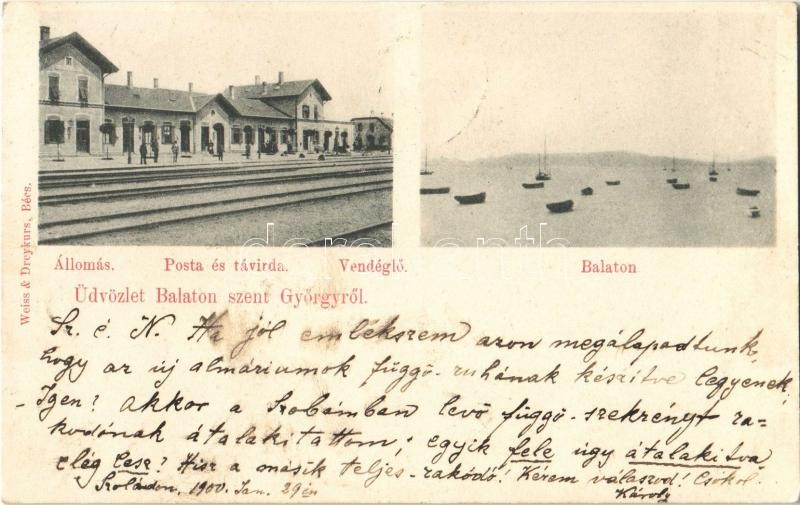 Weiss & Dreykurs, Bécs.
Állomás. Posta és távirda. Vendéglő. Balaton
Üdvözlet Balaton szent Györgyről.
Sz. é. N. Ha jól emlékszem azon megálapadtunk,
hogy az új almáriumok függő-ruhának készítve legyenek,
- Igen? Akkor a szobámban levő függő-szekrényt ra-
kodónak átalakitattom; egyik fele úgy átalakitva
elég lesz? Hisz a másik teljes-rakódó! Kérem válaszod! Csókol.
1900. Jan. 29én Károly